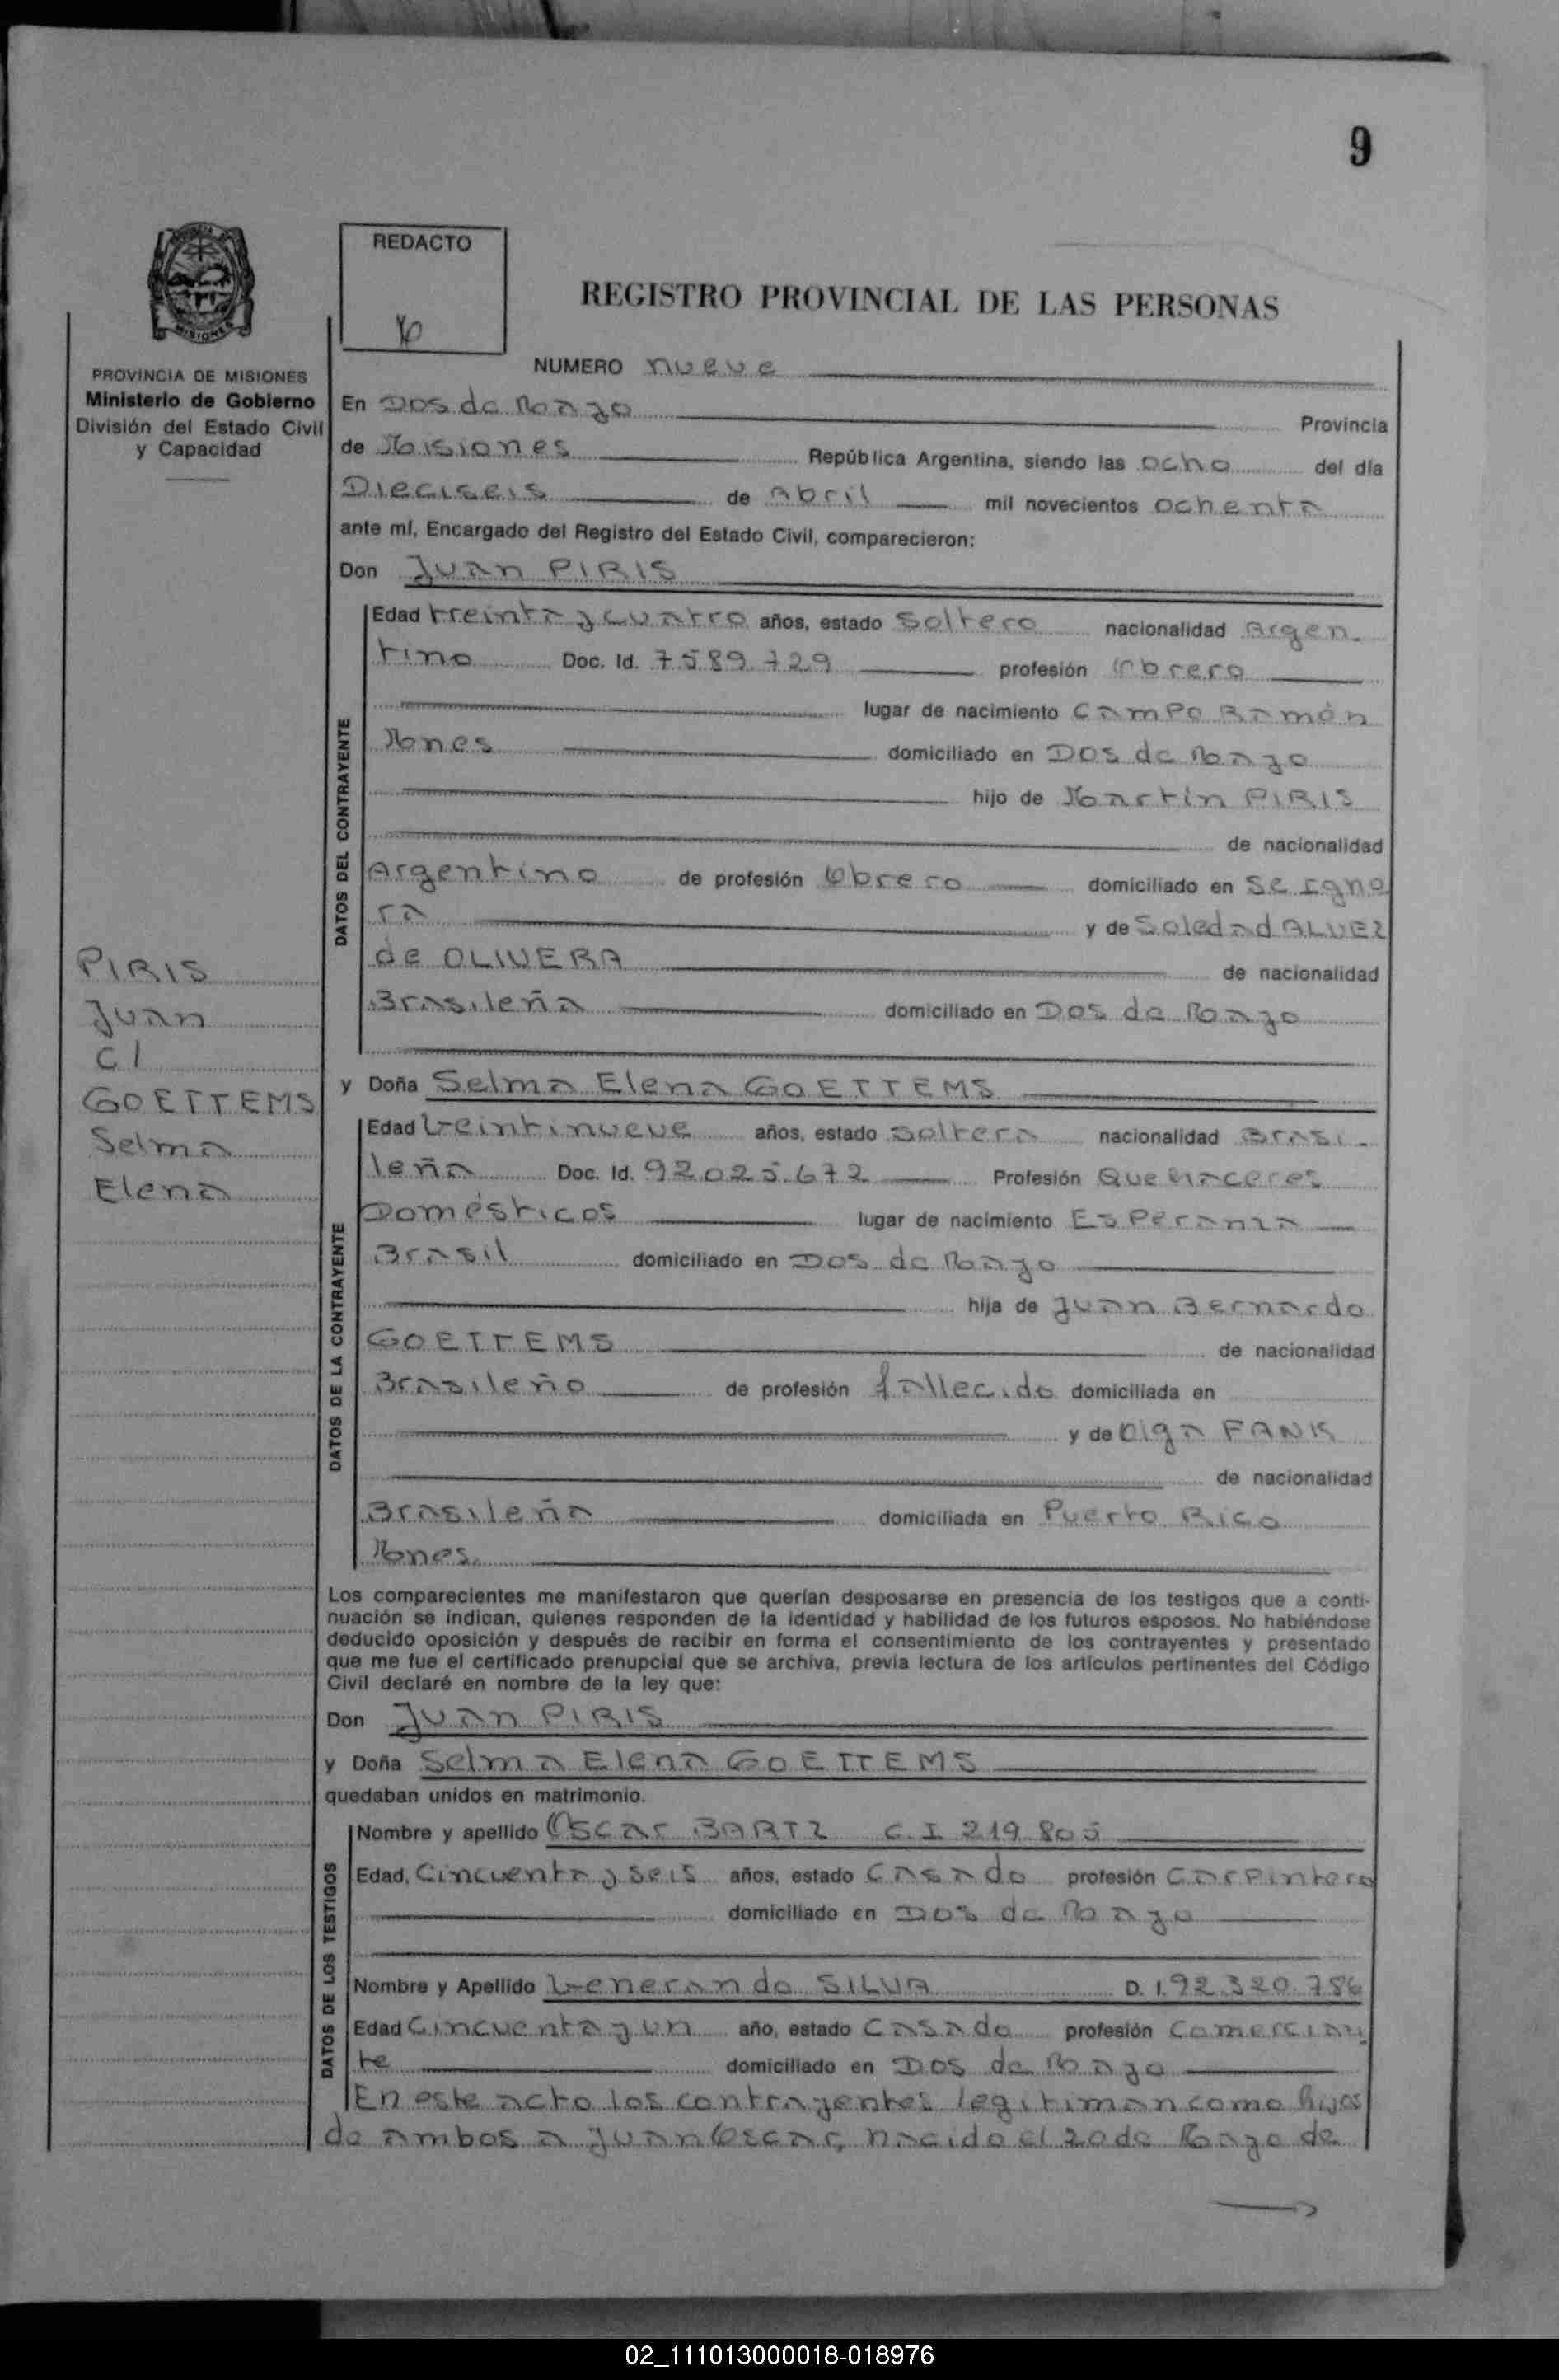 9
REDACTO
REGISTRO PROVINCIAL DE LAS PERSONAS
MISIONES
PROVINCIA DE MISIONES
Ministerio de Gobierno
División del Estado Civil
y Capacidad
NUMERO nueve
En Dos de Mayo Provincia
de Misiones República Argentina, siendo las ocho del día
Dieciseis de Abril mil novecientos ochenta
ante mí, Encargado del Registro del Estado Civil, comparecieron:
Don Juan PIRIS
DATOS DEL CONTRAYENTE
Edad treinta y cuatro años, estado Soltero nacionalidad Argen-
tino Doc. Id. 7589729 profesión Obrero
lugar de nacimiento CAMPO RAmón
Mnes domiciliado en Dos de Mayo
hijo de Martín PIRIS
de nacionalidad
Argentino de profesión Obrero domiciliado en Se Igno
ra y de Soledad ALVEZ
de OLIVERA de nacionalidad
Brasileña domiciliado en Dos de Mayo
PIRIS
Juan
C/
GOETTEMS
Selma
Elena
y Doña Selma Elena GOETTEMS
DATOS DE LA CONTRAYENTE
Edad Veintinueve años, estado Soltera nacionalidad Brasi-
leña Doc. Id. 92.025.672 Profesión Quehaceres
Domésticos lugar de nacimiento Esperanza
Brasil domiciliado en Dos de Mayo
hija de Juan Bernardo
GOETTEMS de nacionalidad
Brasileño de profesión fallecido domiciliada en
y de Olga FANK
de nacionalidad
Brasileña domiciliada en Puerto Rico
Mnes.
Los comparecientes me manifestaron que querían desposarse en presencia de los testigos que a conti-
nuación se indican, quienes responden de la identidad y habilidad de los futuros esposos. No habiéndose
deducido oposición y después de recibir en forma el consentimiento de los contrayentes y presentado
que me fue el certificado prenupcial que se archiva, previa lectura de los artículos pertinentes del Código
Civil declaré en nombre de la ley que:
Don Juan PIRIS
y Doña Selma Elena GOETTEMS
quedaban unidos en matrimonio.
DATOS DE LOS TESTIGOS
Nombre y apellido Oscar BARTZ C.I 219.805
Edad, Cincuenta y seis años, estado Casado profesión Carpintero
domiciliado en Dos de Mayo
Nombre y Apellido Venerando SILVA D. I. 92.320.786
Edad Cincuenta y un año, estado Casado profesión Comercian
te domiciliado en Dos de Mayo
En este acto los contrayentes legitiman como hijos
de ambos a Juan Oscar, nacido el 20 de Mayo de
02_111013000018-018976